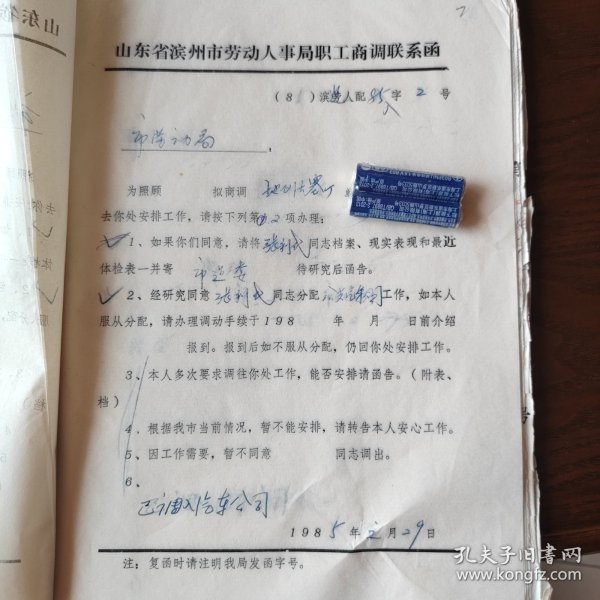 山东省滨州市劳动人事局职工商调联系函
(8 )滨劳人配 字 2 号
市劳动局
为照顾 拟商调
去你处安排工作，请按下列第 2项办理：
1、如果你们同意，请将 同志档案、现实表现和最近
体检表一并寄 待研究后函告。
2、经研究同意 同志分配 工作，如本人
服从分配，请办理调动手续于198 年 月 日前介绍
报到。报到后如不服从分配，仍回你处安排工作。
3、本人多次要求调往你处工作，能否安排请函告。（附表、
档）
4、根据我市当前情况，暂不能安排，请转告本人安心工作。
5、因工作需要，暂不同意 同志调出。
6、
已调入汽车公司
1985年2月29日
注：复函时请注明我局发函字号。
孔夫子旧书网
www.kongfz.com